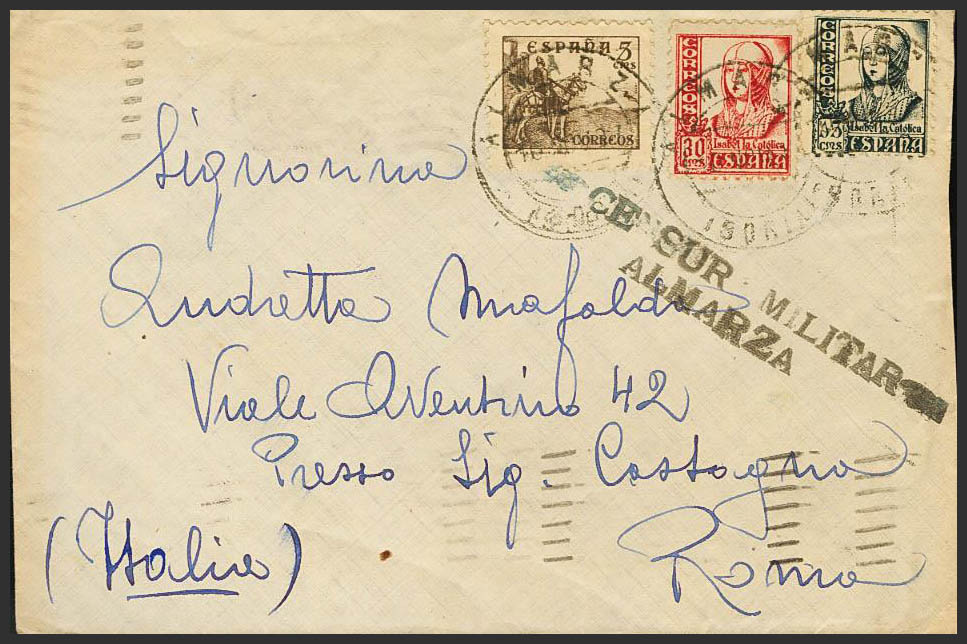 ESPAÑA 5
CTS
CORREOS
CORREOS
30
CTS.
Isabel la Católica
ESPAÑA
CORREOS
Isabel la Católica
CTS.
ESPAÑA
ALMARZ
ALMARZ
(SORIA)
CENSUR MILITAR
ALMARZA
Signorina
Andretta Mafalda
Viale Aventino 42
Presso Sig. Castagna
Roma
(Italia)